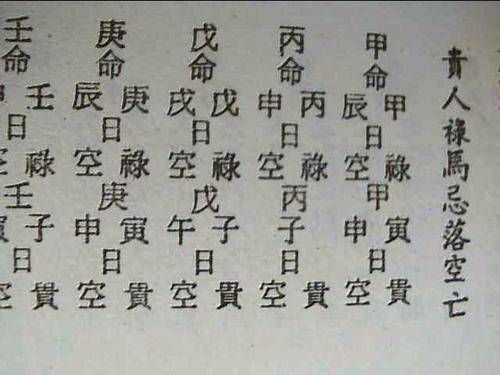 貴人祿馬忌落空亡
甲命甲辰日祿空甲寅申日貴空
丙命丙申日祿空丙子日貴空
戊命戊戌日祿空戊子午日貴空
庚命庚辰日祿空庚寅申日貴空
壬命壬日祿空壬子日貴空